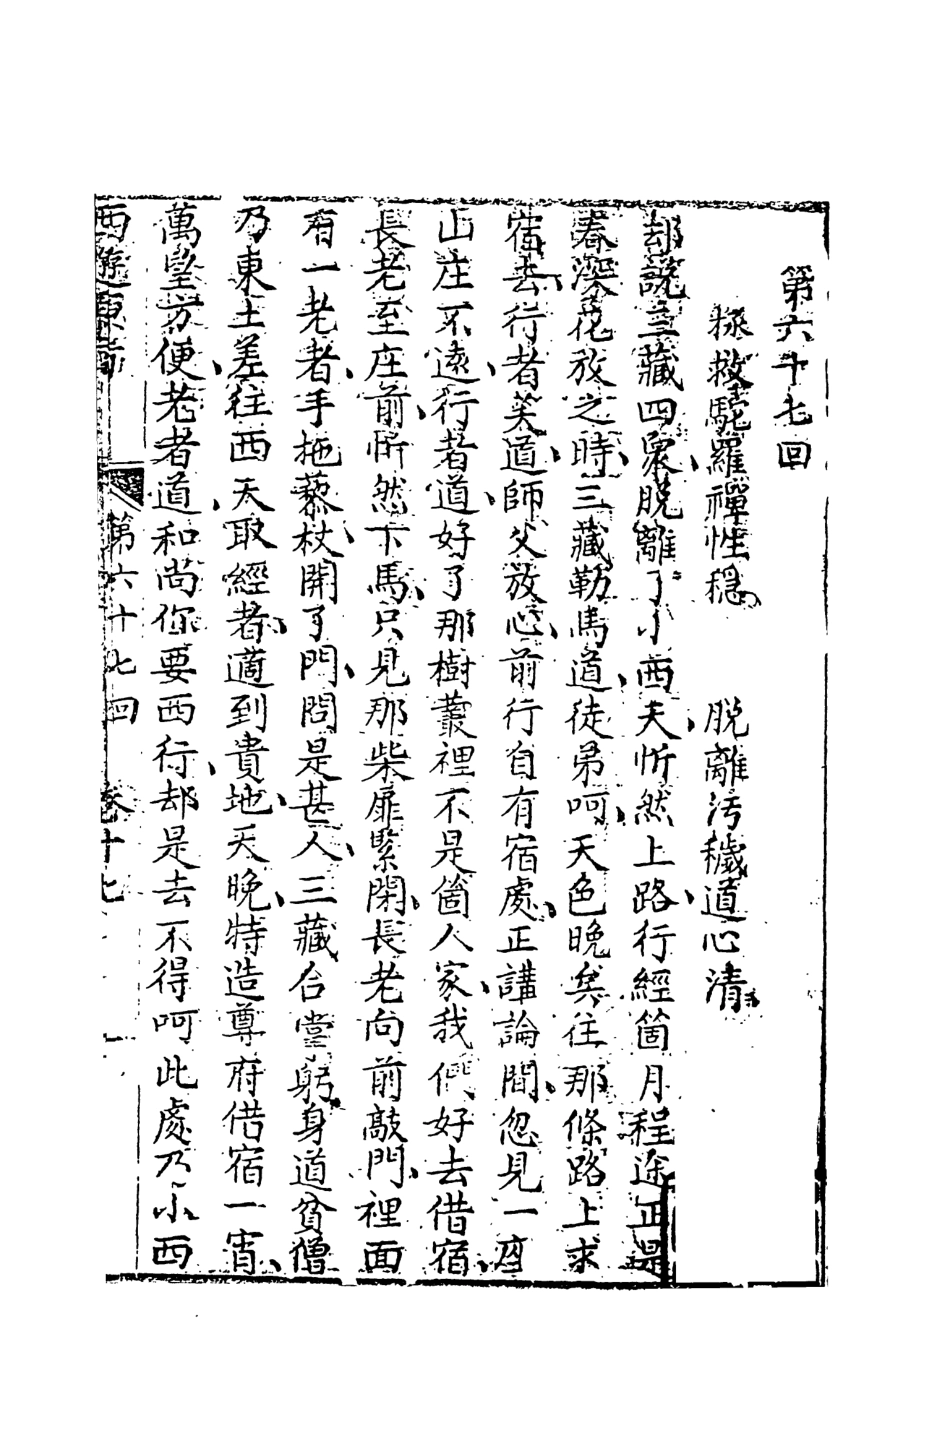 第六十七回
拯救駝羅禪性穩　脫離污穢道心清
却說三藏四衆脫離了小西天忻然上路行經箇月程途正是
春深花放之時三藏勒馬道徒弟呵天色晚矣往那條路上求
宿去行者笑道師父放心前行自有宿處正講論間忽見一座
山庄不遠行者道好了那樹叢裡不是箇人家我們好去借宿
長老至庄前忻然下馬只見那柴扉緊閉長老向前敲門裡面
有一老者手拖藜杖開了門問是甚人三藏合掌躬身道貧僧
乃東土差往西天取經者適到貴地天晚特造尊府借宿一宵
萬望方便老者道和尚你要西行却是去不得呵此處乃小西
西遊 第六十七回 卷十七 一